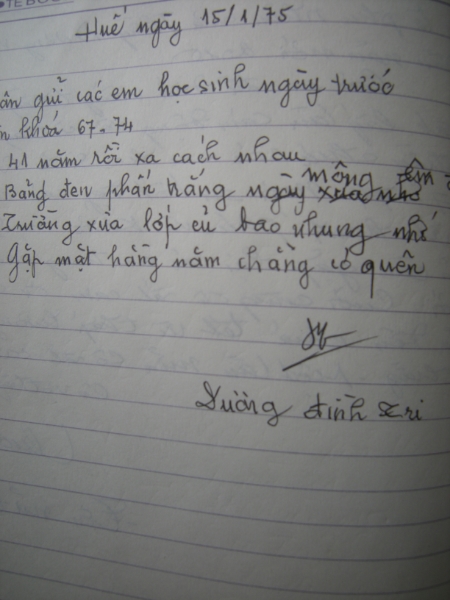 Huế ngày 15/1/75
ân gửi các em học sinh ngày trước
khoá 67-74
41 năm rồi xa cách nhau
Bảng đen phấn trắng mộng
Trường xưa lớp củ bao nhung nhớ
Gặp mặt hằng năm chẳng có quên
Dương đình Tri